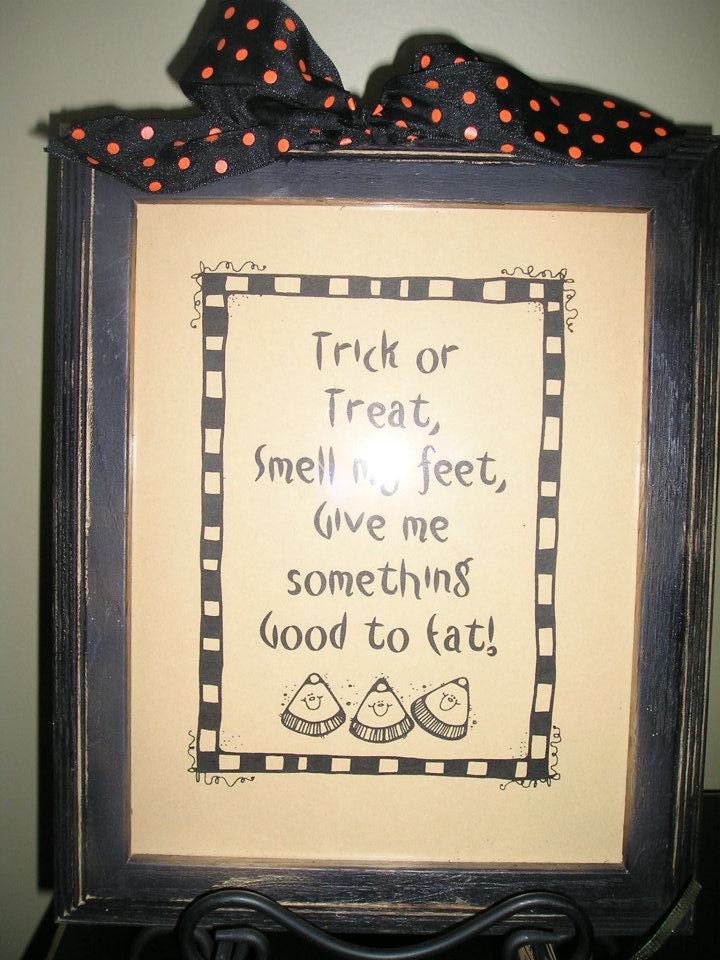 Trick or
Treat,
Smell my feet,
Give me
something
Good to Eat!